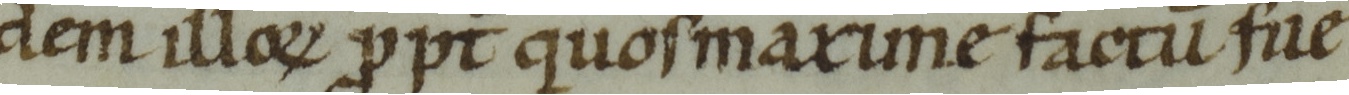 dem illoꝝ ꝓpt quos maxime factū fue